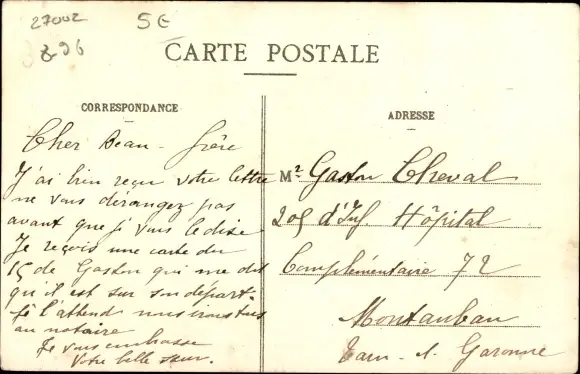 27002 5E
896
CARTE POSTALE
CORRESPONDANCE
Cher Beau-frère
J'ai bien reçu votre lettre
ne vous dérangez pas
avant que je vous le dise
Je reçois une carte du
15 de Gaston qui me dit
qu'il est sur son départ.
Je l'attend nous irons tous
au notaire
Je vous embrasse
Votre belle sœur.
ADRESSE
Mr Gaston Cheval
209 d'Inf. Hôpital
Complémentaire 72
Montauban
Tarn-et-Garonne